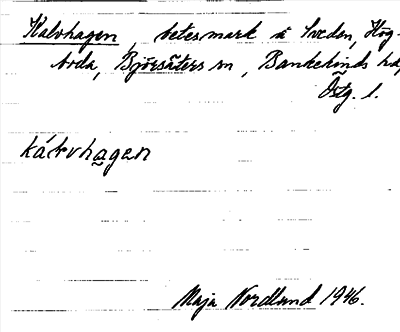 Kalvhagen, betesmark å Svedan, Hög-
boda, Björsäters sn, Bankekinds hd,
Östg. l.
kálvhagen
Maja Nordlund 1946.